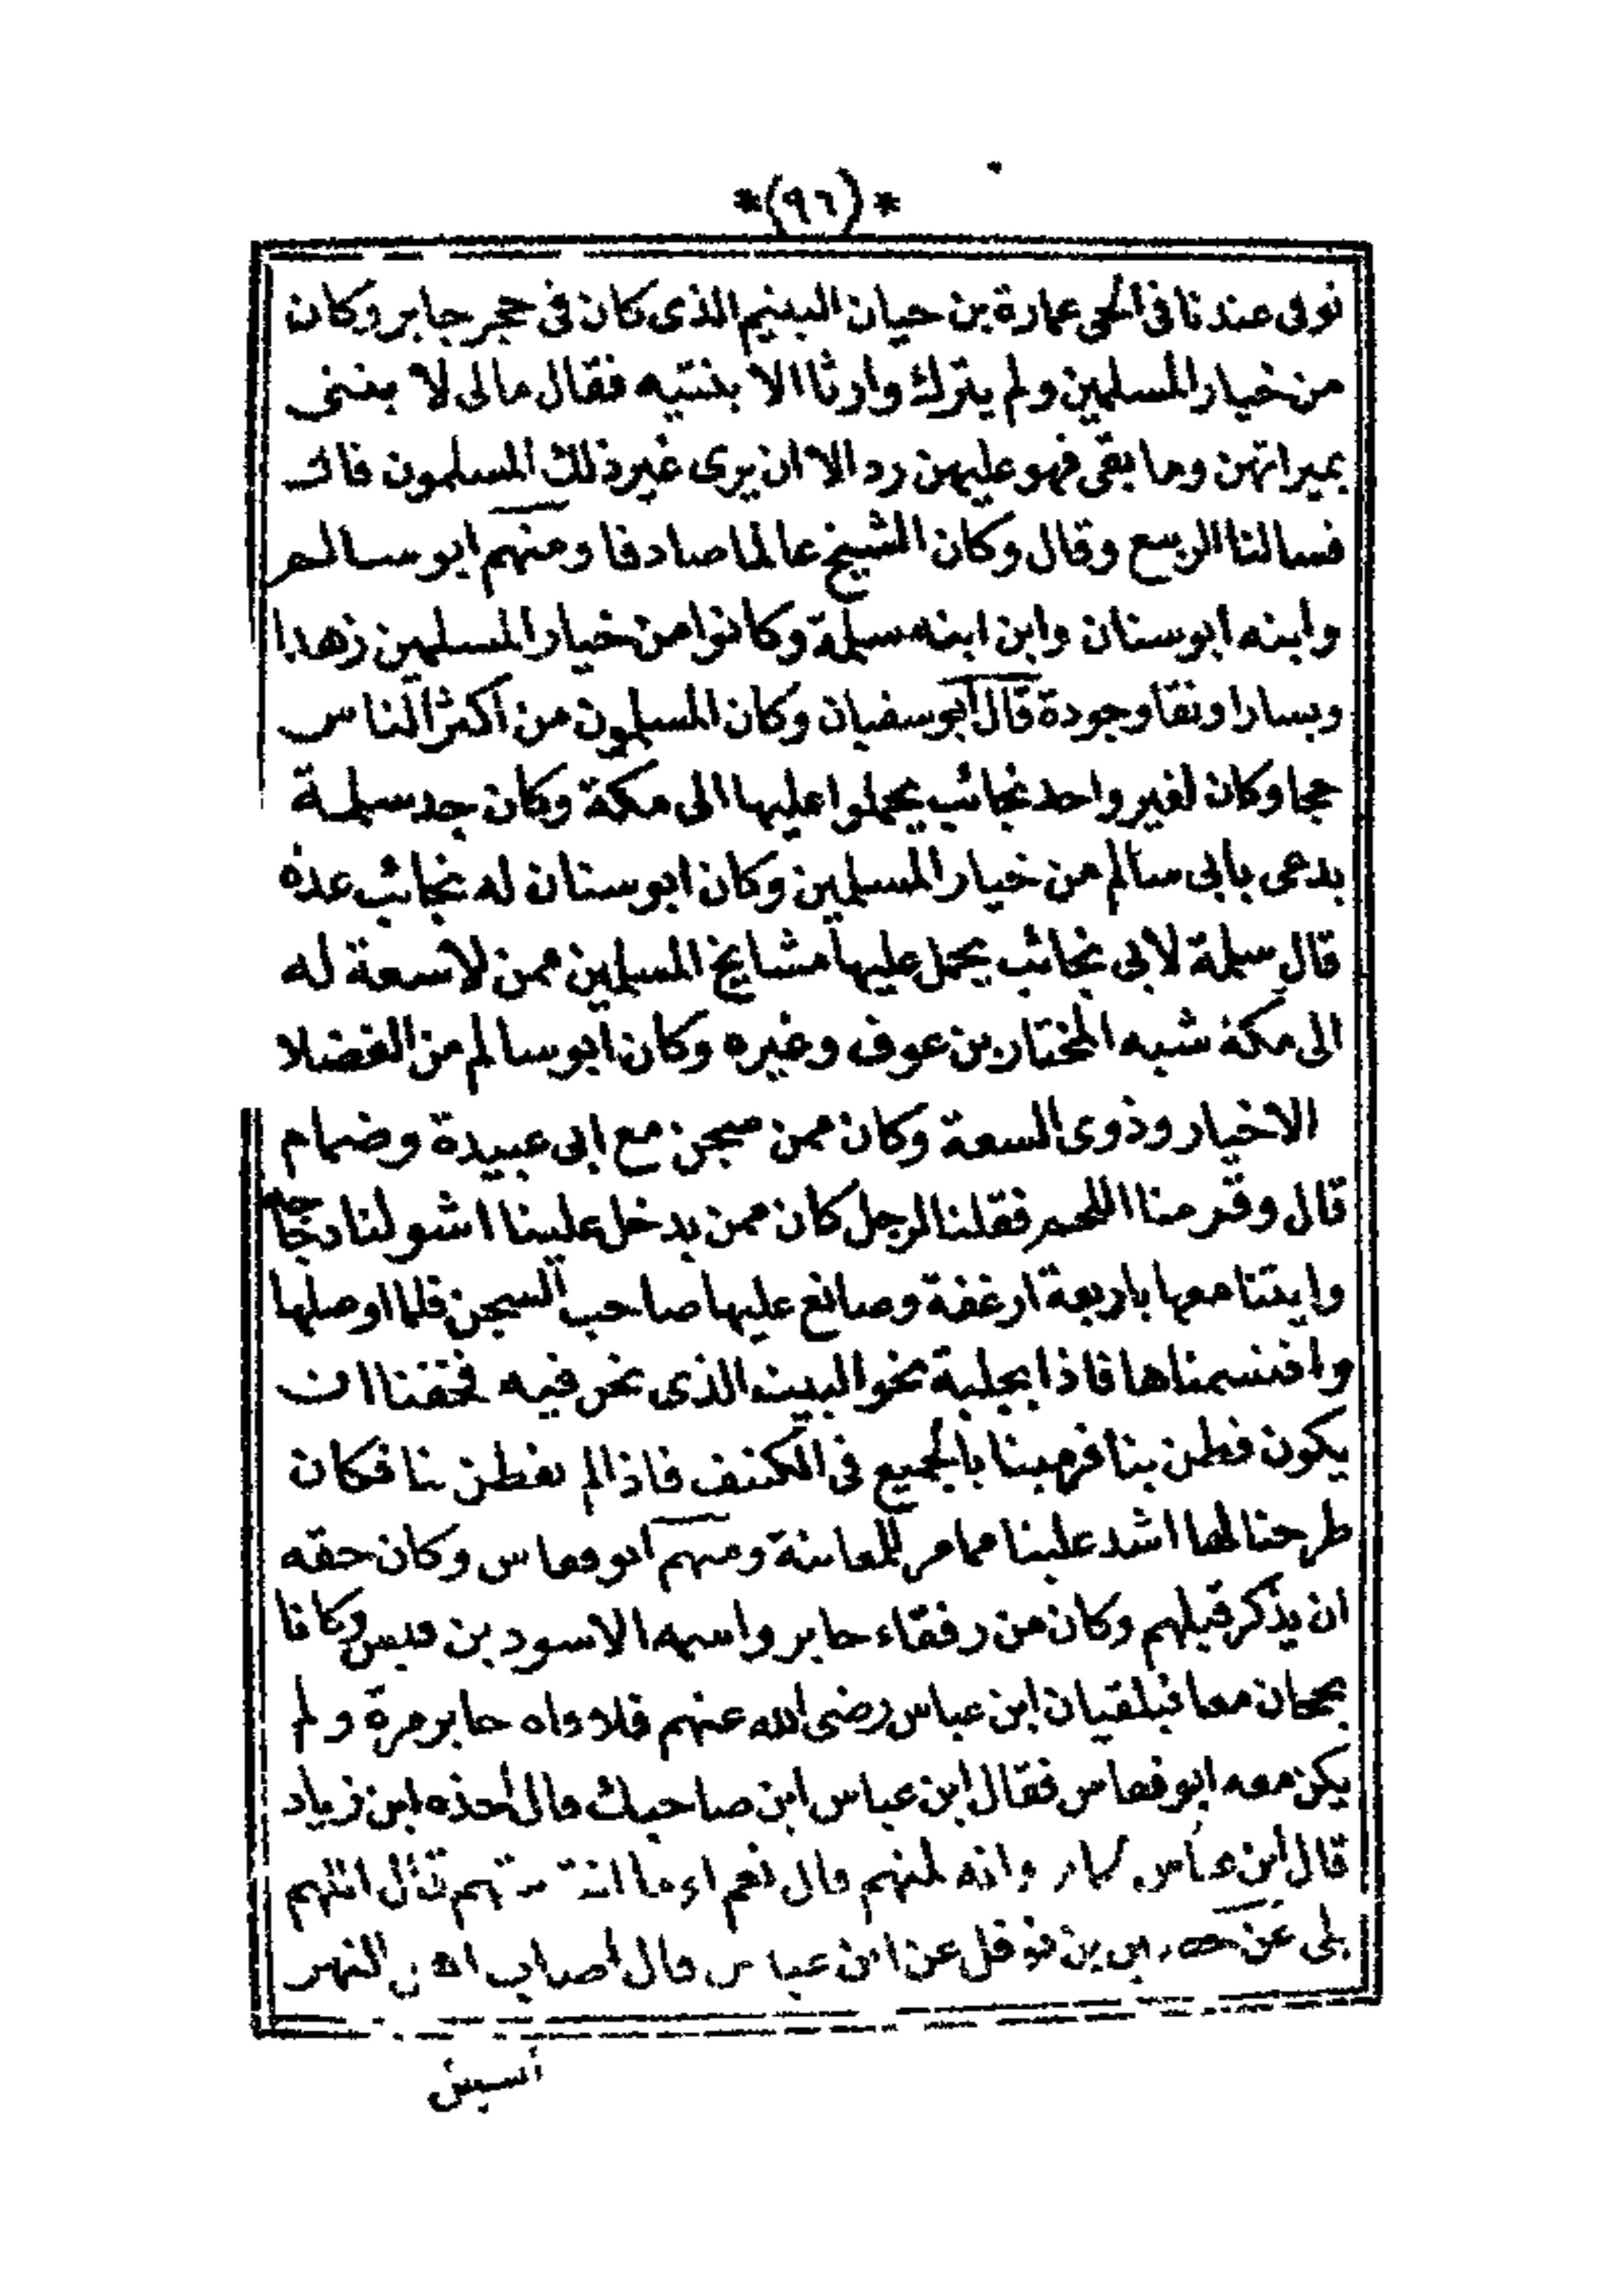 *(٩٦)*
توفى عندنا فى الحى عمارة بن حيان اليتيم الذى كان فى حجر جابر وكان
من خيار المسلمين ولم يترك وارثا الا بنتيه فقال مالى لا بنتى
بميراتهن وما بقى فهو عليهن رد الا ان يرى غير ذلك المسلمون قال
فسالنا الربيع وقال وكان الشيخ عالما صادقا ومنهم ابو سالم
وابنه ابوسنان وابن ابنه سلمة وكانوا من خيار المسلمين زهدا
ويسارا وتقا وجودة قال ابوسفيان وكان المسلمون من اكثر الناس
حجا وكان لغير واحد نجائب يحملوا عليها الى مكة وكان جد سلمة
يدعى بابى سالم من خيار المسلمين وكان ابوسنان له نجائب عدة
قال سلمة لابى نجائب يحمل عليها مشايخ المسلمين ممن لاسعة له
الى مكة شبه المختار بن عوف وغيره وكان ابوسالم من الفضلا
الاخيار وذوى السعة وكان ممن سجن مع ابى عبيدة وضمام
قال وقرمنا اللحم فقلنا لرجل كان ممن يدخل علينا اشو لنا دجاجة
وايتنا معها باربعة ارغفة وصانع عليها صاحب السجن فلما اوصلها
وافتسمناها فاذا بجلبة نحو البيت الذى نحن فيه فخفنا ان
يكون فطن بنا فرمينا بالجميع فى الكنف فاذا لم يفطن بنا فكان
طرحنا لها اشد علينا مما مر للمعاينة ومنهم ابو فقاس وكان حقه
ان يذكر قبلهم وكان من رفقاء جابر واسمه الاسود بن قيس وكانا
يحجان معا فيلقيان ابن عباس رضى الله عنهم فلاقاه جابر مرة ولم
يكن معه ابو فقاس فقال ابن عباس اين صاحبك قال اخذه ابن زياد
قال ابن عباس وانه لمنهم قال نعم قال اللهم
بلى عن بن نوفل عن ابن عباس قال اصاب اهل النهر